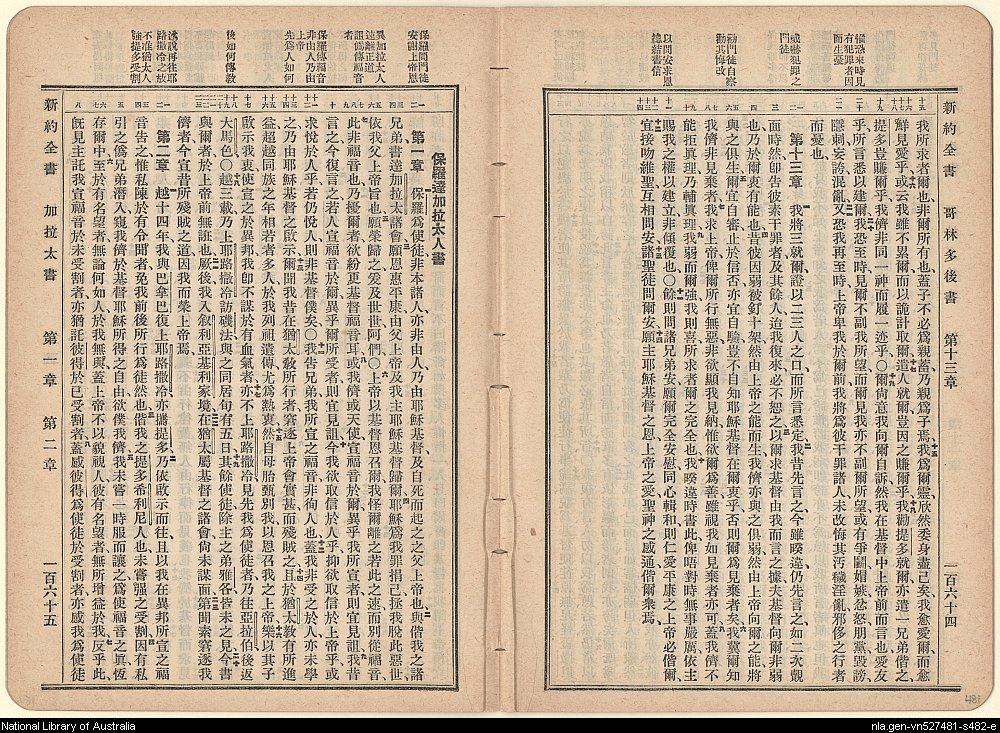 新約全書 哥林多後書 第十三章 一百六十四
懼恐來時見
有犯罪者因
而生憂
或嚇犯罪之
門徒
勸門徒自察
勸其悔改
以問安求恩
總結書信
我所求者爾也非爾所有也蓋子不必爲親蓄乃親爲子焉我爲爾靈欣然委身盡己矣我愈愛爾而愈
鮮見愛乎或云我雖不累爾而以詭計取爾遣人就爾豈因之賺爾乎我勸提多就爾亦遣一兄弟偕之
提多豈賺爾乎我儕非同一神而履一迹乎〇爾尙意我向爾自訴然我在基督中上帝前而言也愛友
乎所言悉以建爾我恐至時見爾不副我所望而爾見我亦不副爾所望或有爭鬬媢嫉忿怒朋黨毀謗
隱刺妄誇混亂又恐我再至時上帝卑我於爾前我將爲彼干罪諸人未改悔其汚穢淫亂邪侈之行者
而憂也
第十三章 我將三就爾證以二三人之口而所言悉定我昔先言之今雖暌違仍先言之如二次覿
面時然卽告彼素干罪者及其餘人迨我復來必不恕之以爾求基督由我而言之據夫基督向爾非弱
也乃於爾衷有能也昔彼因弱被釘十架然由上帝之能而生我儕亦與之俱弱然由上帝向爾之能將
與之俱生爾宜自審止於信否亦宜自驗豈不自知耶穌基督在爾衷乎否則爾爲見棄者矣我冀爾知
我儕非見棄者我求上帝俾爾所行無惡非欲顯我見納惟欲爾爲善雖視我如見棄者亦可蓋我儕不
能拒眞理乃輔眞理我弱而爾強我則喜所求者爾之完全也我暌違時書此俾晤對時無事嚴厲依主
賜我之權以建立非傾覆也〇餘則問諸兄弟安願爾完全安慰同心輯和則仁愛平康之上帝必偕爾
宜接吻維聖互相問安諸聖徒問爾安願主耶穌基督之恩上帝之愛聖神之感通偕爾衆焉
保羅問門徒
安謝上帝恩
異加拉太人
速離正道
詛僞傳福音
者
保羅傳福音
非由人乃由
上帝
先爲人如何
後如何傳敎
述說再往耶
路撒冷之故
不准猶太人
強提多受割
保羅達加拉太人書
第一章 保羅爲使徒非本諸人亦非由人乃由耶穌基督及自死而起之之父上帝也與偕我之諸
兄弟書達加拉太諸會願恩惠平康由父上帝及我主耶穌基督歸爾耶穌爲我罪捐己拯我脫此惡世
依我父上帝旨也願榮歸之爰及世世阿們〇上帝以基督恩召爾我怪爾離之若此之速而別從福音
此非福音也乃擾爾者欲紊更基督福音耳或我儕或天使宣福音於爾異乎我所宣者則宜見詛我昔
言之今復言之若人宣福音於爾異乎爾所受者則宜見詛今我欲取信於人乎抑欲取信於上帝乎或
求悅於人乎若仍悅人則非基督僕矣〇我吿兄弟我所宣之福音非徇人也蓋我非受之於人亦未學
之乃由耶穌基督之啟示爾聞我昔在猶太敎所行者窘逐上帝會實甚而殘賊之且於猶太敎有所進
益超越同族之年相若者多人於我列祖遺傳尤爲熱衷然自母胎甄別我以恩召我之上帝樂以其子
啟示我衷使宣之於異邦我卽不謀於有血氣者亦不上耶路撒冷見先我爲使徒者乃往亞拉伯後返
大馬色〇越三載乃上耶路撒冷訪磯法與之同居旬有五日其餘使徒除主之弟雅各皆未之見今書
與爾者於上帝前無誑也厥後我入叙利亞基利家境在猶太屬基督之諸會尙未謀面第聞素窘逐我
儕者今宣昔所殘賊之道因我而榮上帝焉
第二章 越十四年我與巴拿巴復上耶路撒冷亦攜提多乃依啟示而往且以我在異邦所宣之福
音吿之惟私陳於有令聞者免我前後所行爲徒然也偕我之提多希利尼人也未嘗强之受割因有私
引之僞兄弟潛入窺我儕於基督耶穌所得之自由欲僕我儕我未嘗一時服而讓之爲使福音之眞恆
存爾中至於有名望者無論何如人於我無與蓋上帝不以貌視人彼有名望者無所增益於我反乎此
旣見主託我宣福音於未受割者亦猶託彼得於已受割者蓋感彼得爲使徒於受割者亦感我爲使徒
新約全書 加拉太書 第一章 第二章 一百六十五
481
National Library of Australia
nla.gen-vn527481-s482-e